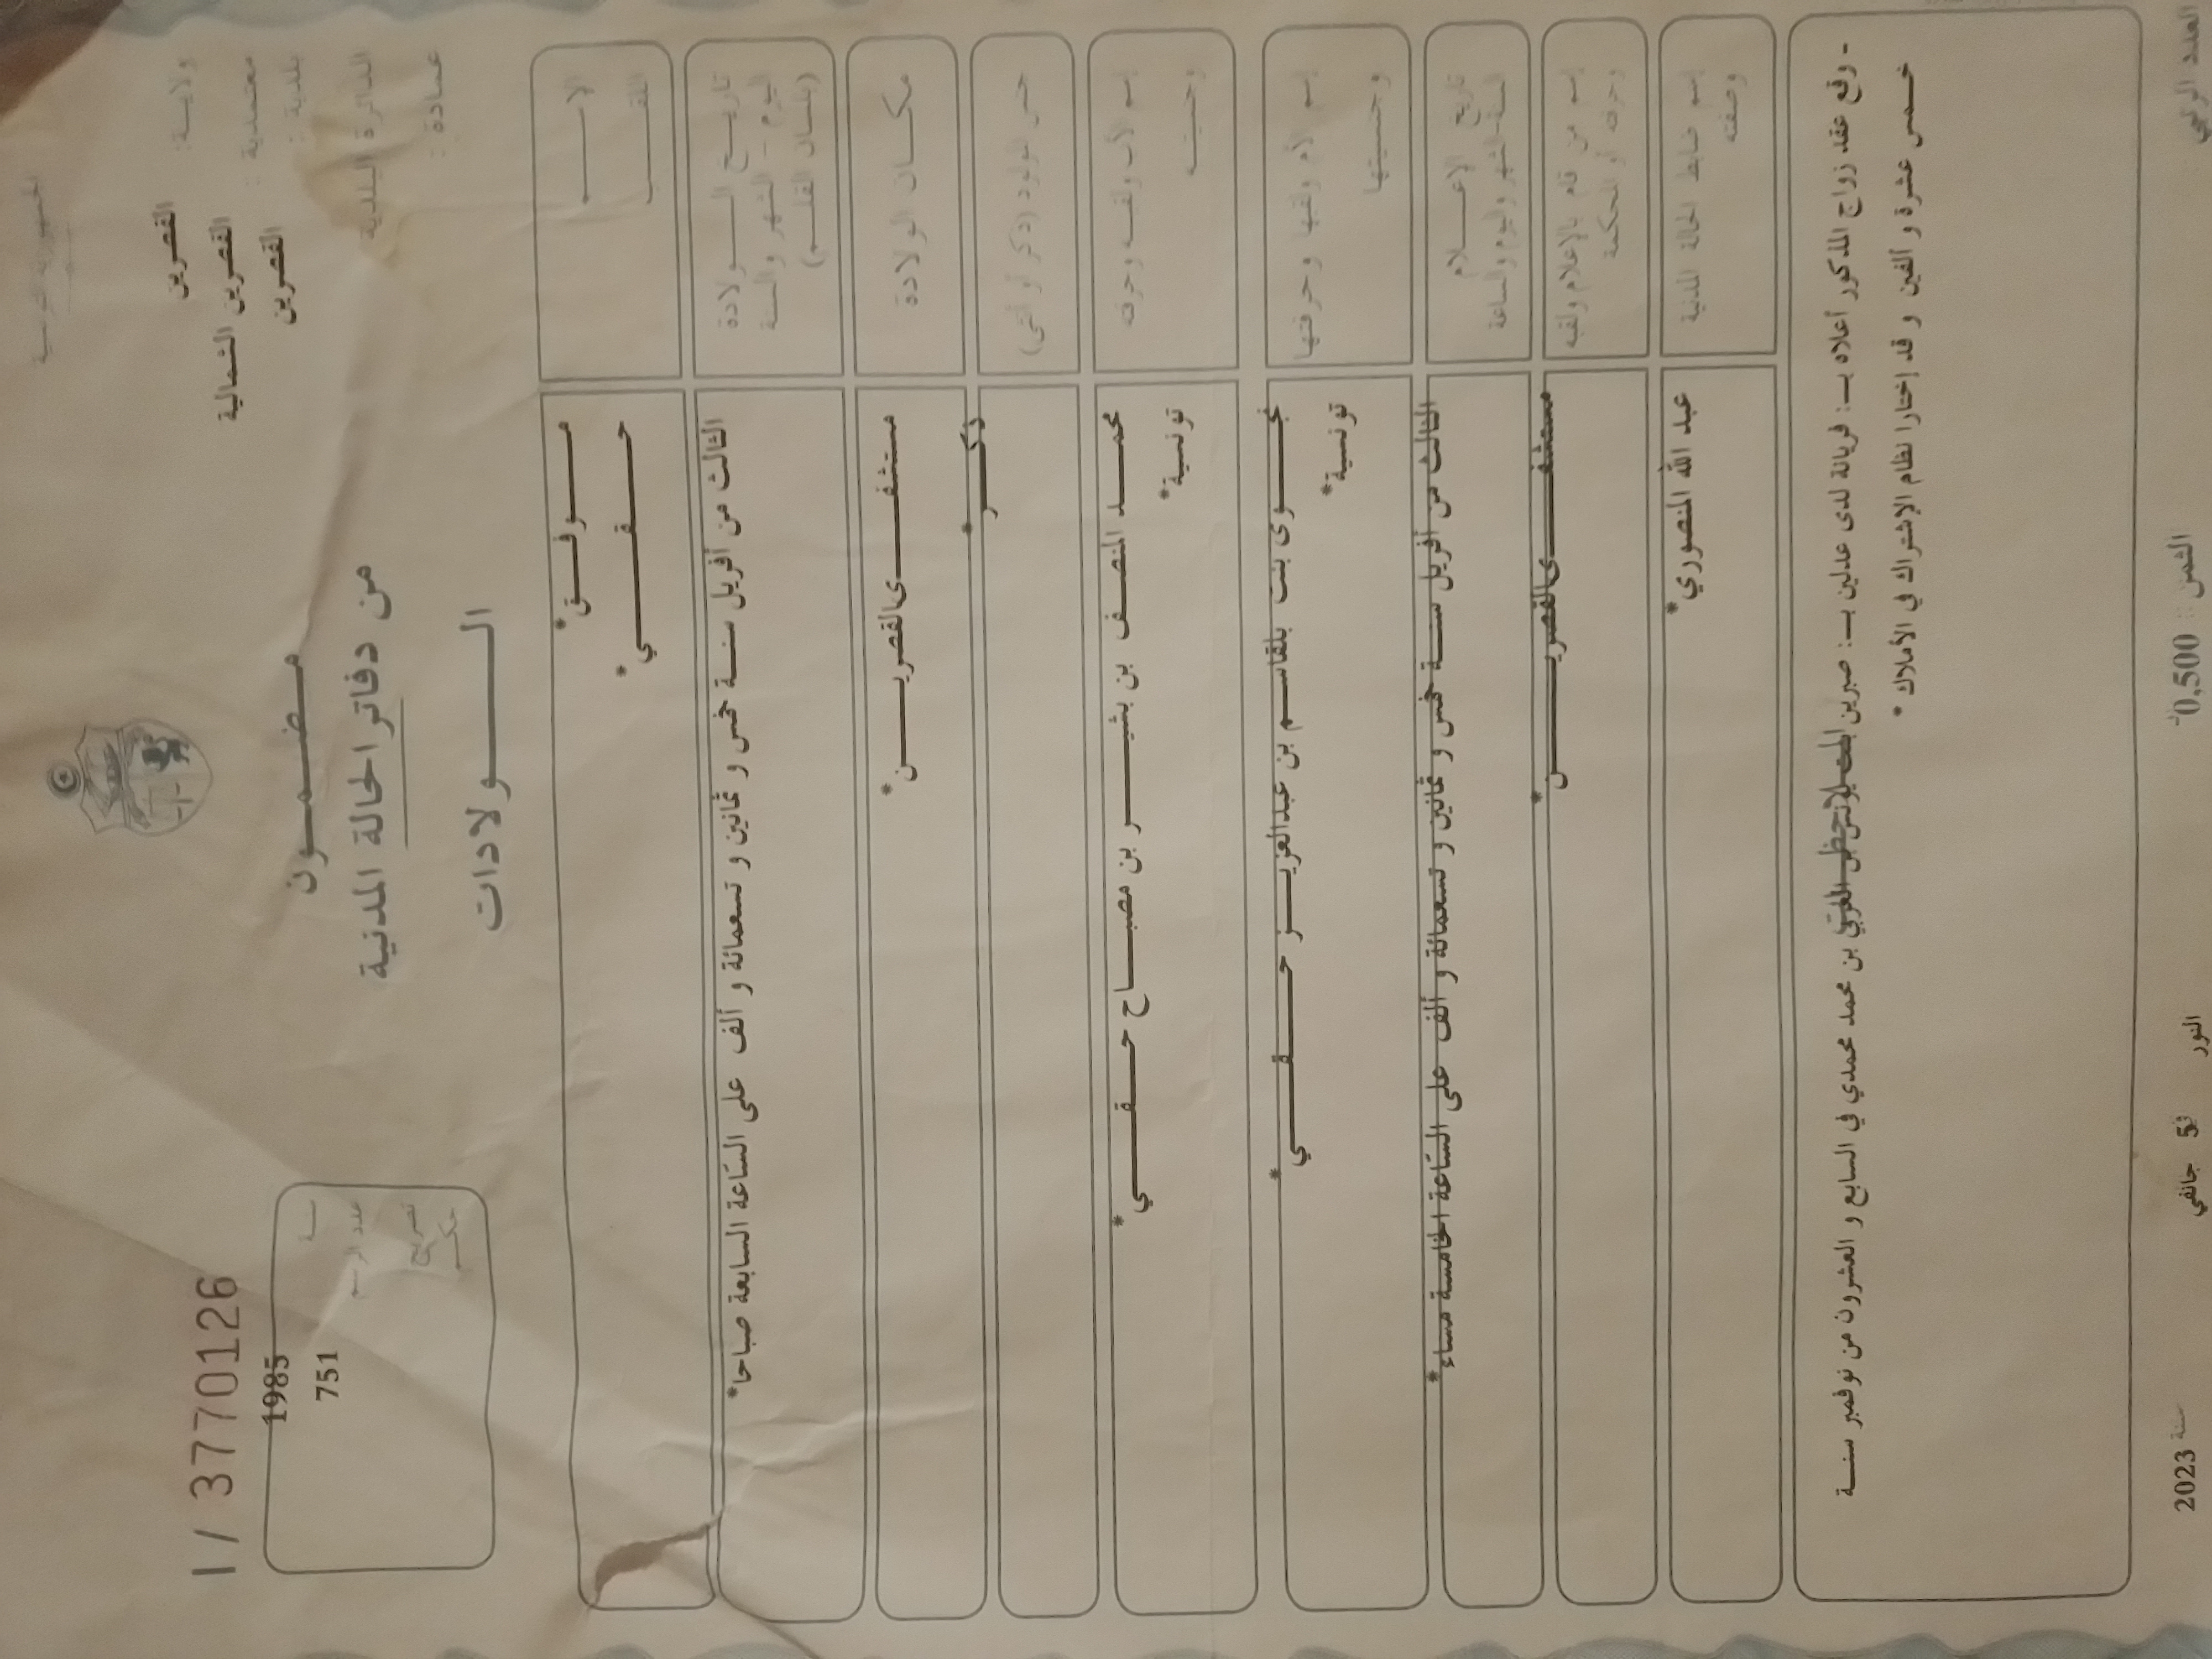 الجمهورية التونسية
ولاية: القصرين
معتمدية: القصرين الشمالية
بلدية: القصرين
الدائرة البلدية
عمادة:
مضمون
من دفاتر الحالة المدنية
الولادات
1/ 3770126
سنة 1985
عدد الرسم 751
تصريح
حكم
الاسم موفق*
اللقب حقي*
تاريخ الولادة
اليوم - الشهر والسنة
(بلسان القلم)
الثالث من أفريل سنة خمس و ثمانين و تسعمائة و ألف على السّاعة السابعة صباحا*
مكان الولادة مستشفى القصرين*
جنس المولود (ذكر أو أنثى) ذكر*
إسم الأب ولقبه وحرفته محمد المنصف بن بشير بن مصباح حقي*
وجنسيته تونسية*
إسم الأم ولقبها وحرفتها نجوى بنت بلقاسم بن عبدالعزيز حقي*
وجنسيتها تونسية*
تاريخ الإعلام
السنة-الشهر واليوم والساعة
الثالث من أفريل سنة خمس و ثمانين و تسعمائة و ألف على السّاعة الخامسة مساء*
إسم من قام بالإعلام ولقبه
وحرفته أو المحكمة
مستشفى القصرين*
إسم ضابط الحالة المدنية
وصفته
عبد الله المنصوري*
- وقع عقد زواج المذكور أعلاه بـ: فريانة لدى عدلين بـ: صبرين بن محمد محمدي في السابع و العشرون من نوفمبر سنة
خمس عشرة و ألفين و قد إختارا نظام الإشتراك في الأملاك *
العدد الرتبي
الثمن: 0,500د
النور في 5 جانفي سنة 2023